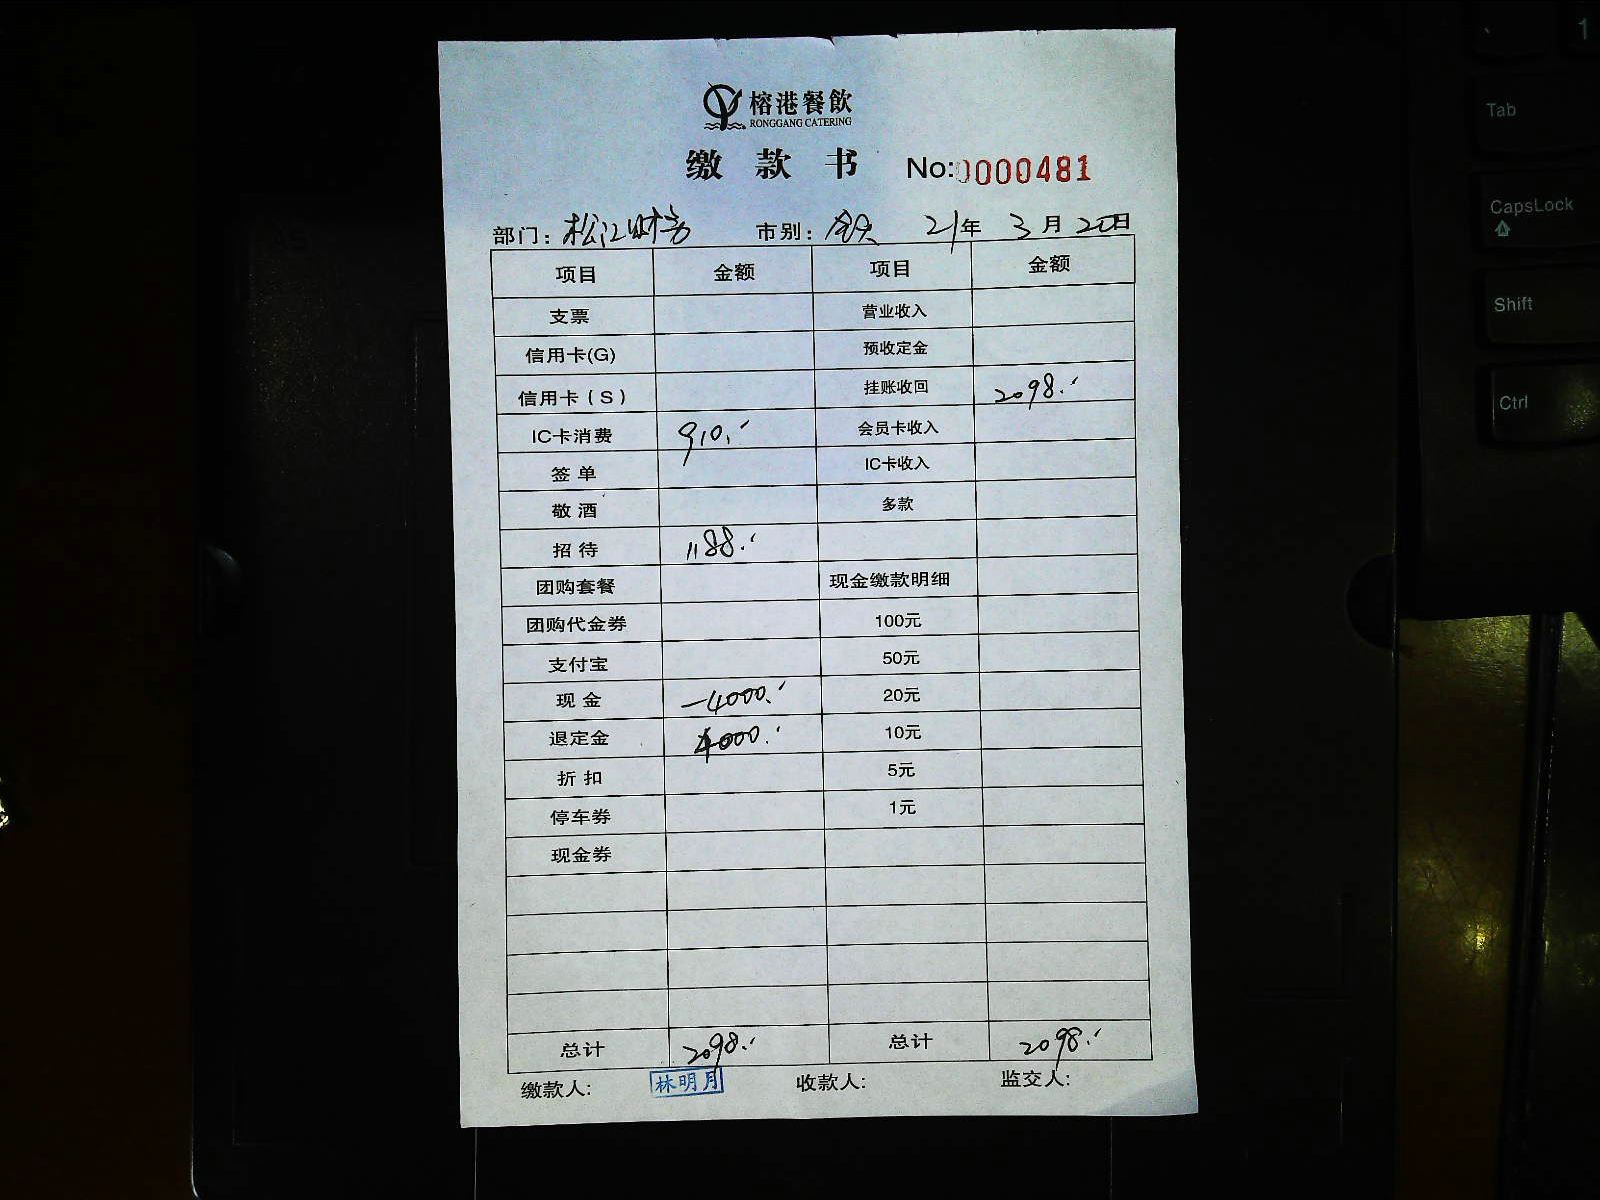 榕港餐飲
RONGGANG CATERING
缴款书 No:0000481
部门：松江财务 市别：全天 21年3月20日
项目 金额 项目 金额
支票 营业收入
信用卡(G) 预收定金
信用卡（S） 挂账收回 2098.-
IC卡消费 910.- 会员卡收入
签单 IC卡收入
敬酒 多款
招待 1188.-
团购套餐 现金缴款明细
团购代金券 100元
支付宝 50元
现金 -4000.- 20元
退定金 4000.- 10元
折扣 5元
停车券 1元
现金券
总计 2098.- 总计 2098.-
缴款人: 林明月 收款人: 监交人:
Tab
CapsLock
Shift
Ctrl
1